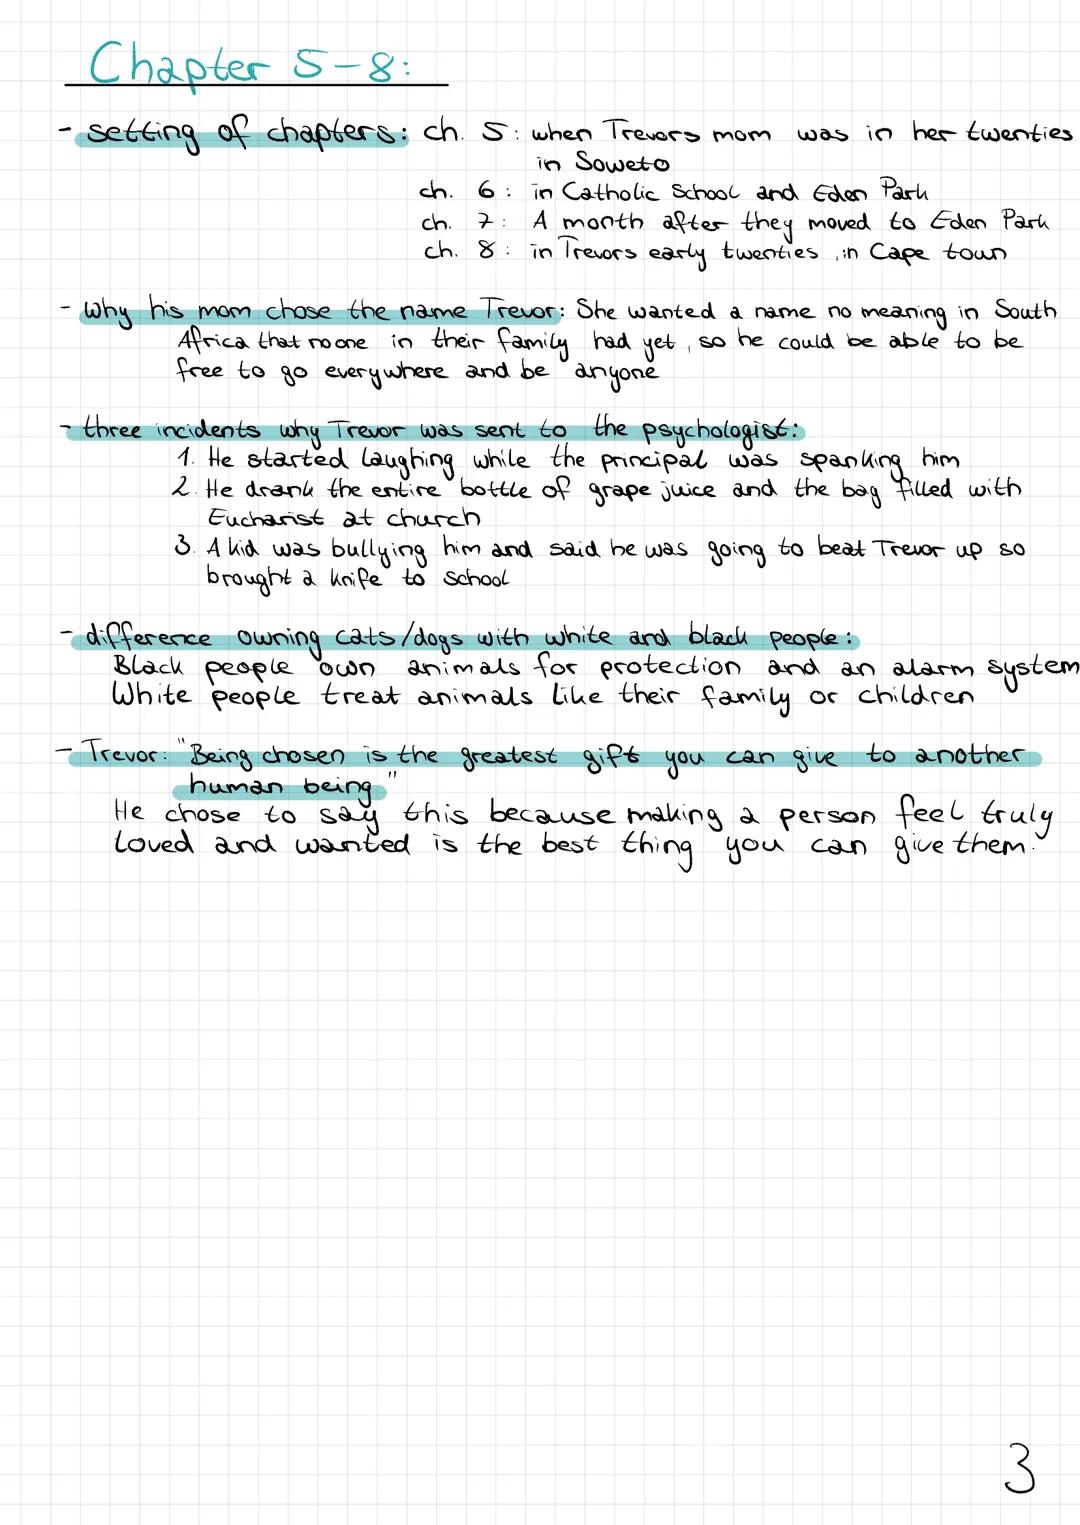 Chapter 5-8:
- setting of chapters: ch. 5: when Trevors mom was in her twenties
in Soweto
ch. 6: in Catholic School and Eden Park
ch. 7: A month after they moved to Eden Park
ch. 8: in Trevors early twenties, in Cape town
- Why his mom chose the name Trevor: She wanted a name no meaning in South
Africa that no one in their family had yet, so he could be able to be
free to go everywhere and be anyone
- three incidents why Trevor was sent to the psychologist:
1. He started laughing while the principal was spanking him
2. He drank the entire bottle of grape juice and the bag filled with
Eucharist at church
3. A kid was bullying him and said he was going to beat Trevor up so
brought a knife to school
- difference owning cats/dogs with white and black people:
Black people own animals for protection and an alarm system
White people treat animals like their family or children
- Trevor: "Being chosen is the greatest gift you can give to another
human being"
He chose to say this because making a person feel truly
loved and wanted is the best thing you can give them.
3